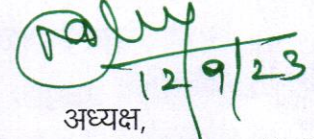 12/9/23
अध्यक्ष,